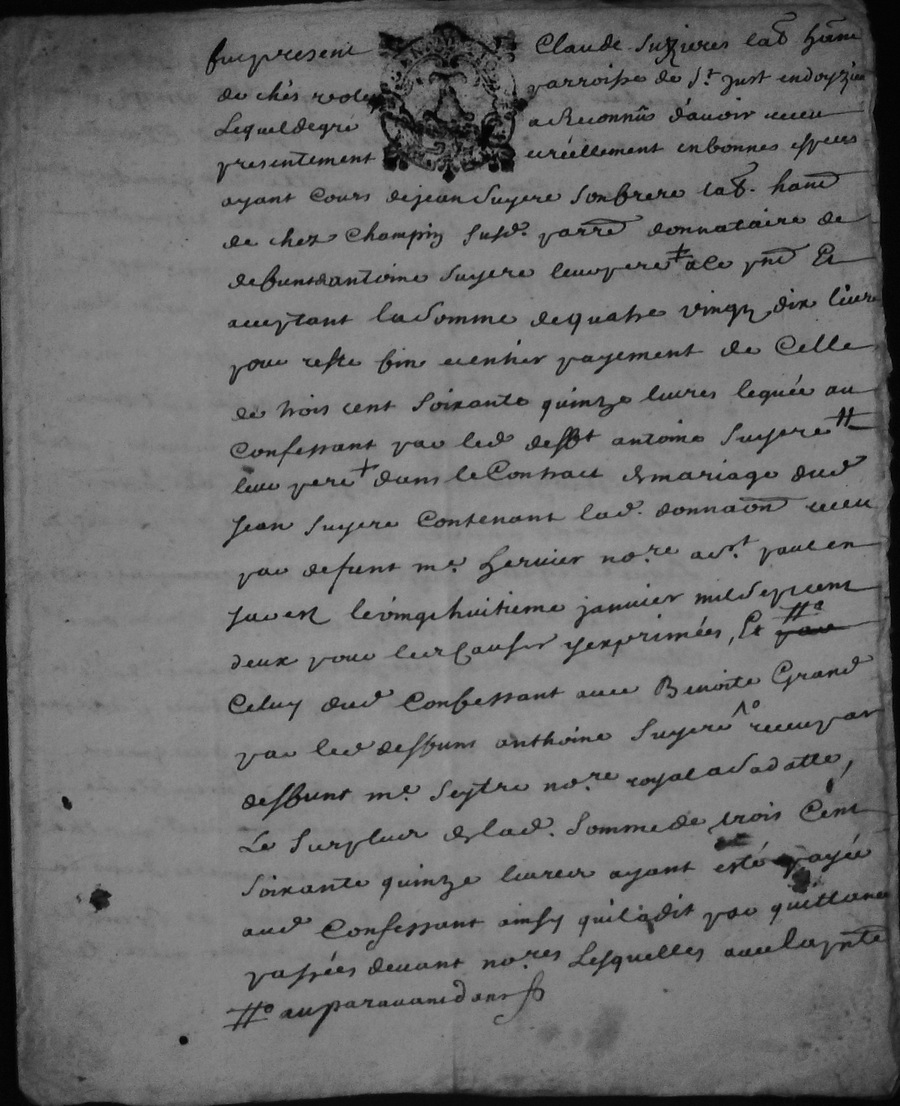 fut present Claude Suzieres lab. ham.
de chés reole parroisse de St. just endoyzieu
Lequel degré a Reconnüs d'avoir receu
presentement et réellement en bonnes especes
ayant Cours de jean Suyere Son frere lab. ham.
de chez Champin Susd. parr. donnataire de
deffunt antoine Suyere leur pere ‡ a ce pnt. Et
acceptant la Somme de quatre vingt dix livres
pour reste fin et entier payement de Celle
de trois cent Soixante quinze livres leguée au
Confessant par led. deffst antoine Suyere #
leur pere + dans le Contract de mariage dud.
Jean Suyere Contenant lad. donnaon. receu
par defunt me. hervier nore.
le vingt huitieme janvier mil Sept cent
deux pour les Causes y exprimées, Et #a par
Celuy dud. Confessant avec Benoite Grand
par led. deffunt anthoine Suyere receu par
deffunt me. Seytre nore. royal a Sa datte,
Le Surplus de lad. Somme de trois Cent
Soixante quinze livres ayant esté payée
aud. Confessant ainsy qu'il a dit par quittances
passées devant nores. Lesquelles avec la pnte.
#a auparavant dans